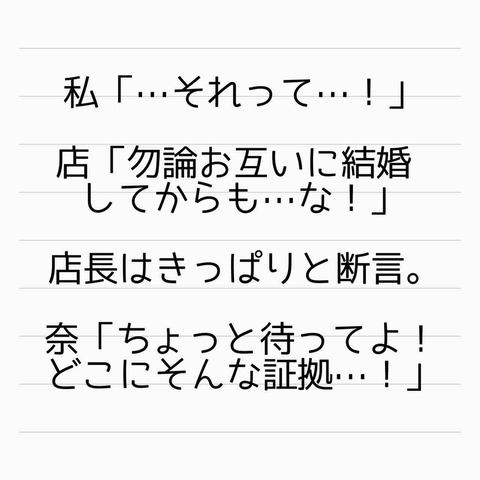 私「…それって…！」
店「勿論お互いに結婚
してからも…な！」
店長はきっぱりと断言。
奈「ちょっと待ってよ！
どこにそんな証拠…！」